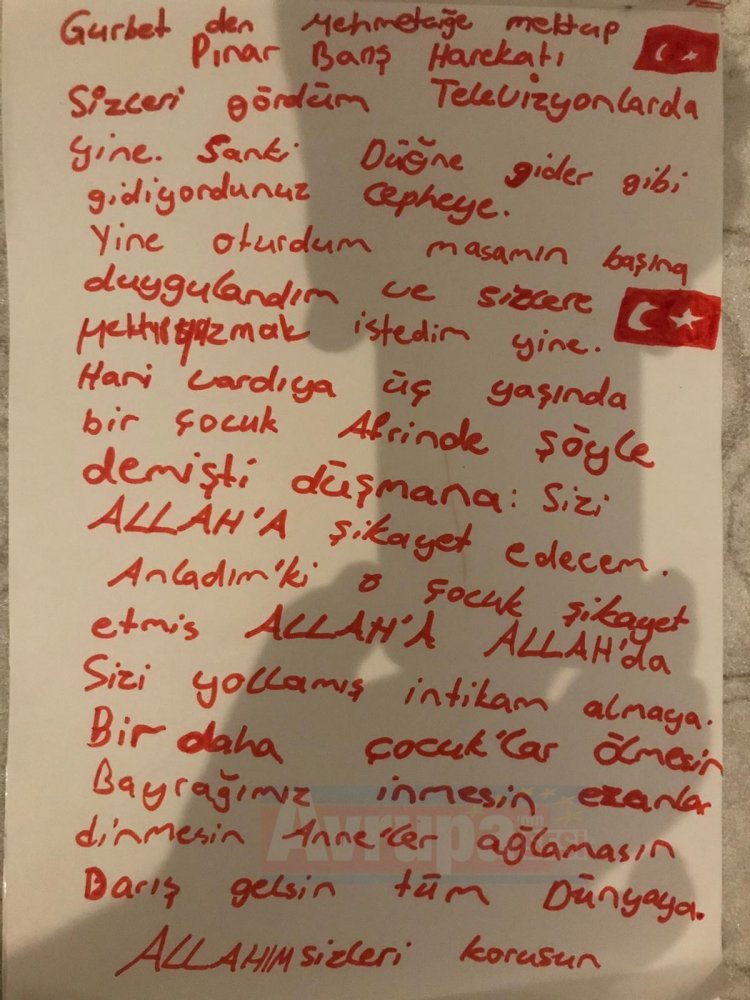 Gurbet den Mehmetciğe mektup
Pınar Barış Harekatı
Sizleri gördüm Televizyonlarda
yine. Sanki Düğne gider gibi
gidiyordunuz Cepheye.
Yine oturdum masamın başına
duygulandım ve sizlere
yazmak istedim yine.
Hani vardıya üç yaşında
bir çocuk Afrinde şöyle
demişti düşmana: Sizi
ALLAH'A şikayet edecem.
Anladım'ki o çocuk şikayet
etmis ALLAH'A ALLAH'da
Sizi yollamış intikam almaya.
Bir daha çocuk'lar ölmesin
Bayrağımız inmesin ezanlar
dinmesin Anne'ler ağlamasın
Barış gelsin tüm Dünyaya.
ALLAHIM sizleri korusun
Avrupa'nın SESİ